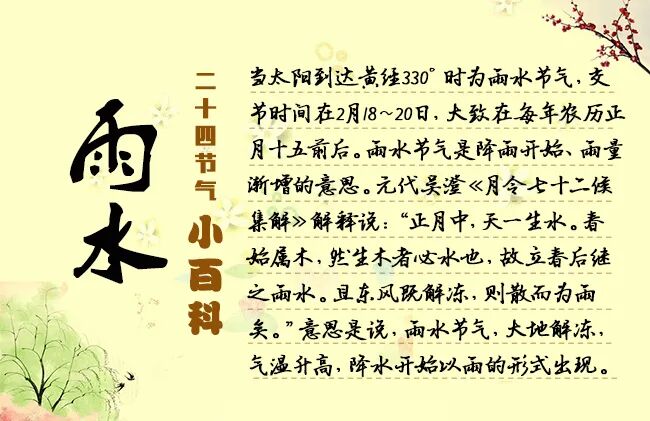 雨水
二十四节气
小百科
当太阳到达黄经330°时为雨水节气，交
节时间在2月18~20日，大致在每年农历正
月十五前后。雨水节气是降雨开始、雨量
渐增的意思。元代吴澄《月令七十二候
集解》解释说：“正月中，天一生水。春
始属木，然生木者必水也，故立春后继
之雨水。且东风既解冻，则散而为雨
矣。”意思是说，雨水节气，大地解冻，
气温升高，降水开始以雨的形式出现。